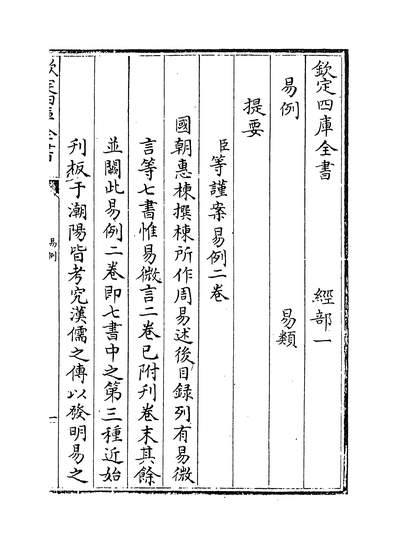 欽定四庫全書 經部一
易例 易類
提要
臣等謹案易例二卷
國朝惠棟撰棟所作周易述後目録列有易微
言等七書惟易微言二卷已附刋卷末其餘
並闕此易例二卷即七書中之第三種近始
刋板于潮陽皆考究漢儒之傳以發明易之
易例
一